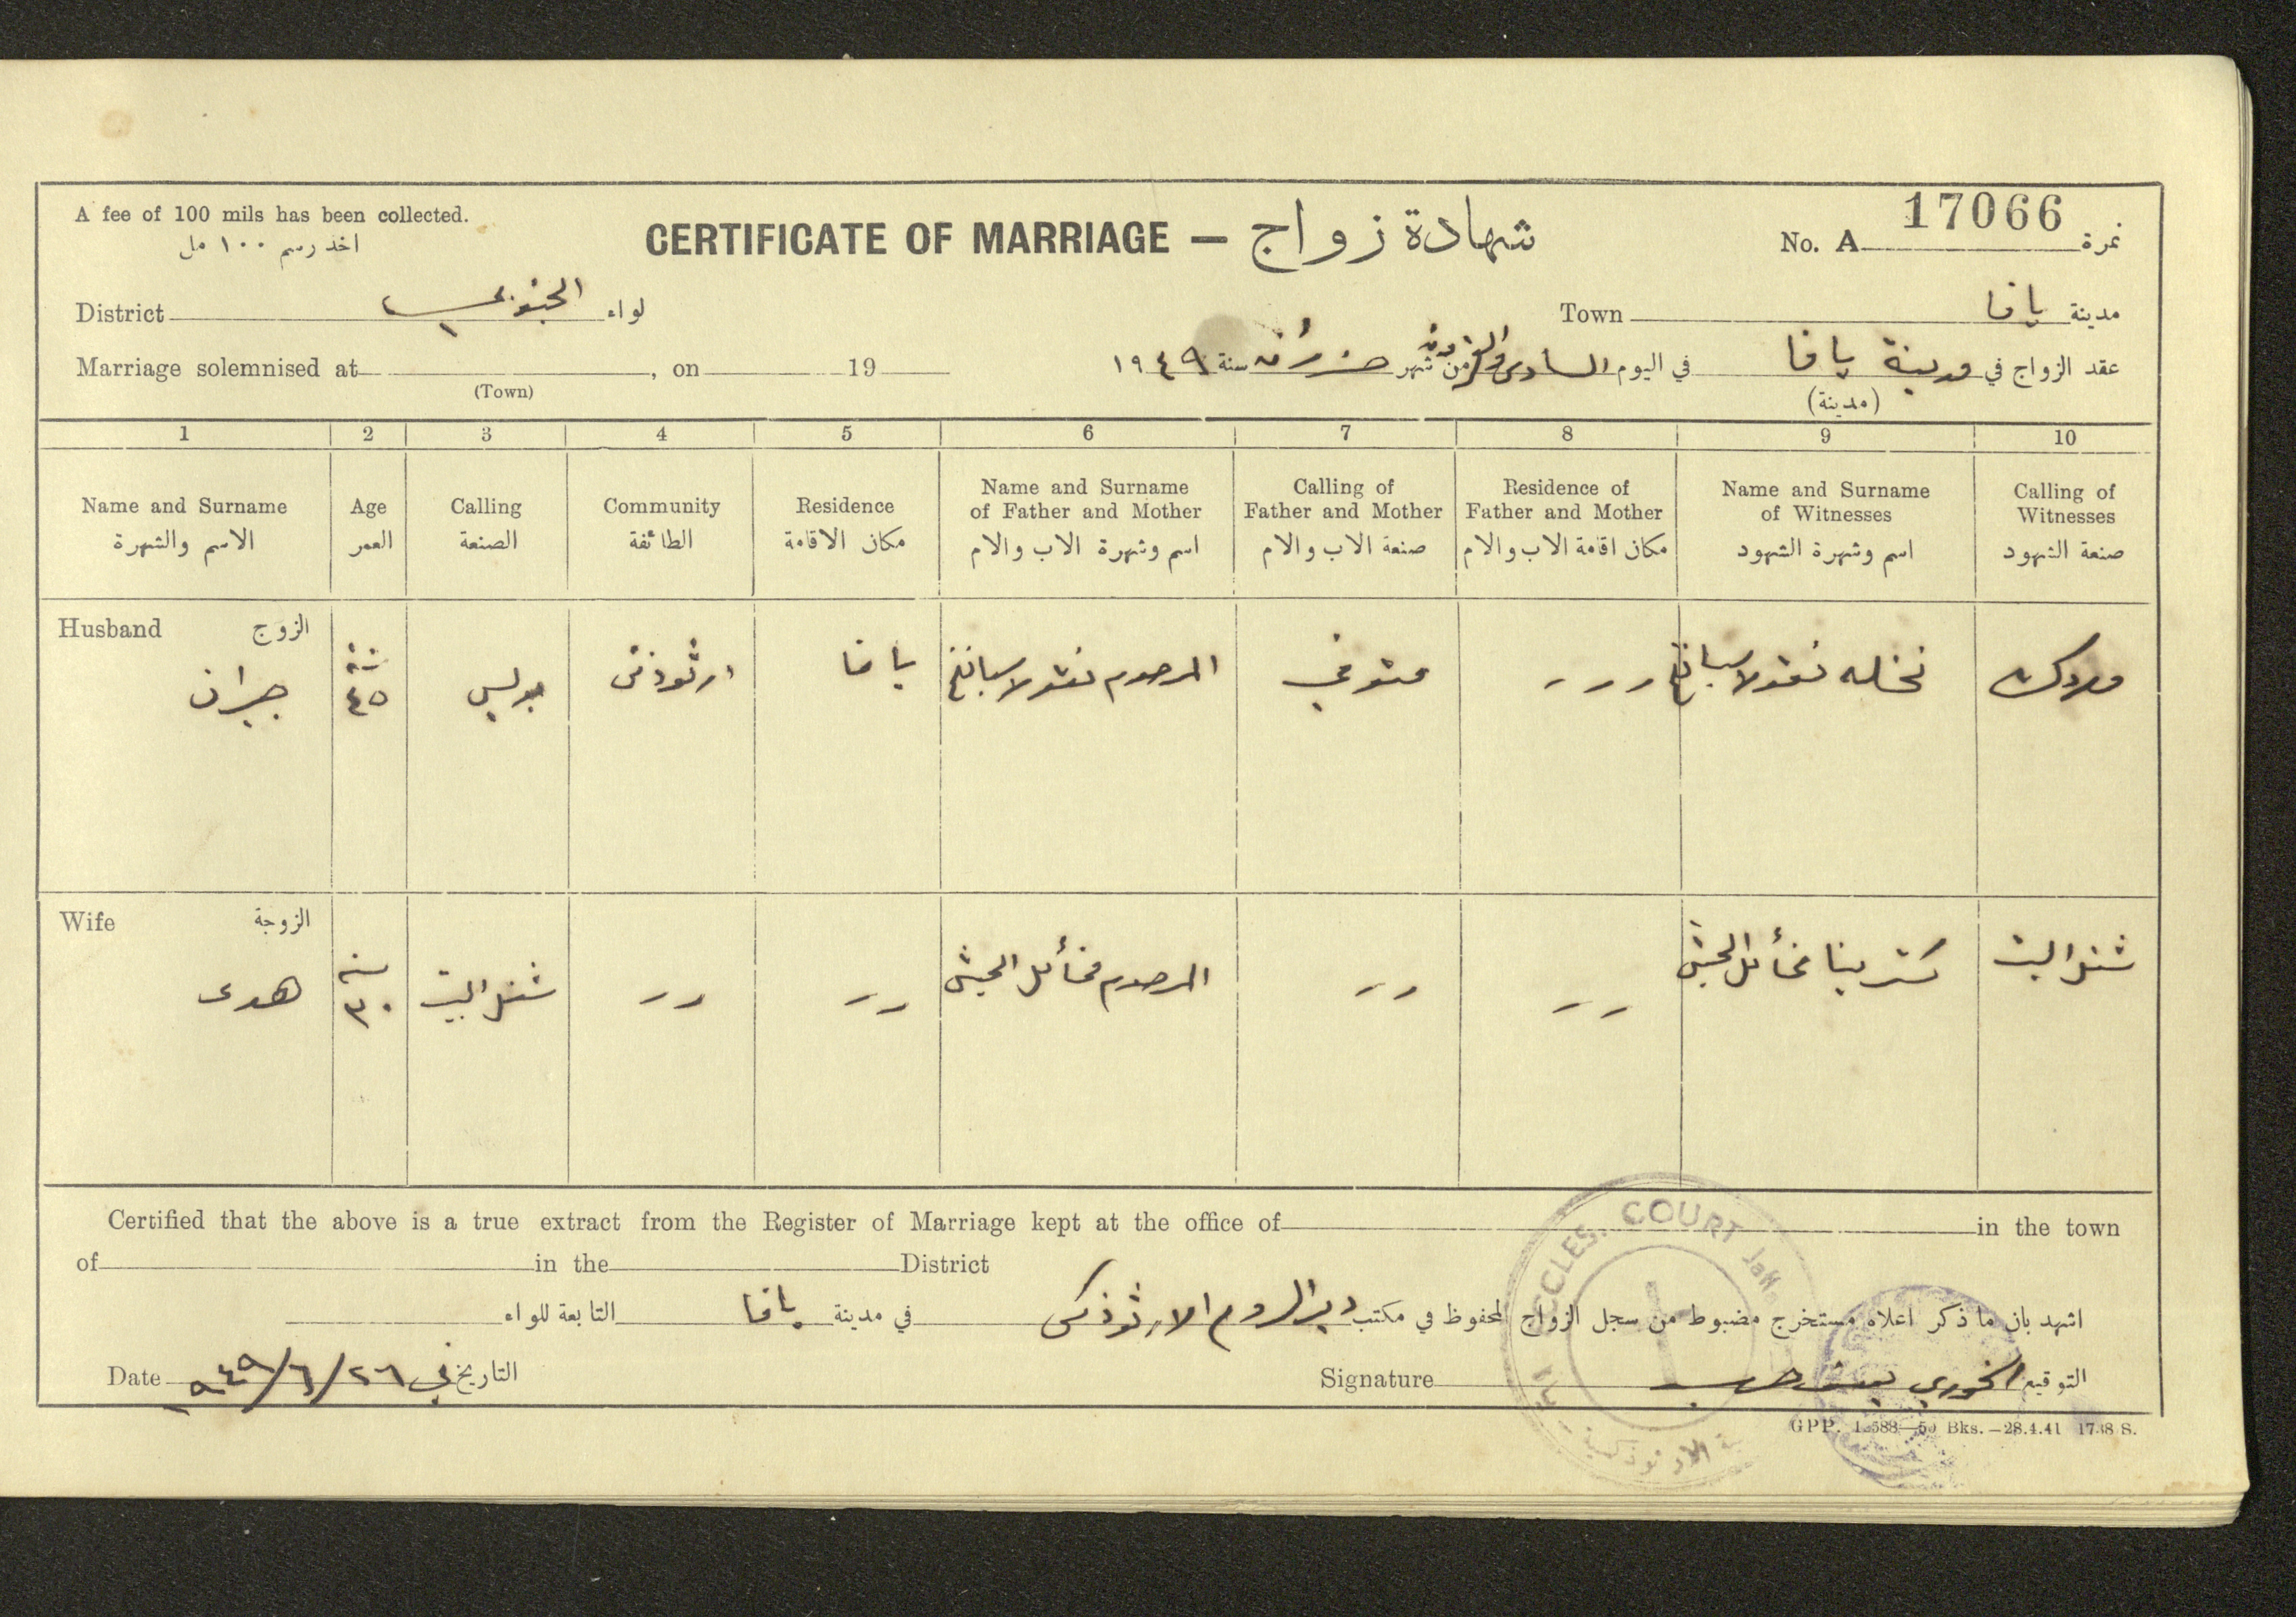 A fee of 100 mils has been collected.
اخذ رسم ١٠٠ مل
CERTIFICATE OF MARRIAGE — شهادة زواج
No. A 17066 نمرة
District الجنوبي لواء
Town يافا مدينة
Marriage solemnised at , on 19
(Town)
عقد الزواج في مدينة يافا في اليوم السادس والعشرون من شهر حزيران سنة ١٩٤٩
(مدينة)
1 2 3 4 5 6 7 8 9 10
Name and Surname
الاسم والشهرة
Age
العمر
Calling
الصنعة
Community
الطائفة
Residence
مكان الاقامة
Name and Surname
of Father and Mother
اسم وشهرة الاب والام
Calling of
Father and Mother
صنعة الاب والام
Residence of
Father and Mother
مكان اقامة الاب والام
Name and Surname
of Witnesses
اسم وشهرة الشهود
Calling of
Witnesses
صنعة الشهود
Husband الزوج
جبران
سنة
٤٥
بوليس
ارثوذكسي
يافا
المرحوم نقولا سبانغ
متوفي
نخله نقولا سبانغ
ملاك
Wife الزوجة
هدى
سنه
٣٠
شغل البيت
المرحوم مخائل الحبش
كترينا مخائل الحبش
شغل البيت
Certified that the above is a true extract from the Register of Marriage kept at the office of in the town
of in the District
اشهد بان ما ذكر اعلاه مستخرج مضبوط من سجل الزواج المحفوظ في مكتب دير الروم الارثوذكس في مدينة يافا التابعة للواء
Date التاريخ في ٢٦/٦/٩٤٩
Signature الخوري التوقيع
ECCLES. COURT Jaffa
الارثوذكسية
GPP. 1588—50 Bks.—28.4.41 1738 S.